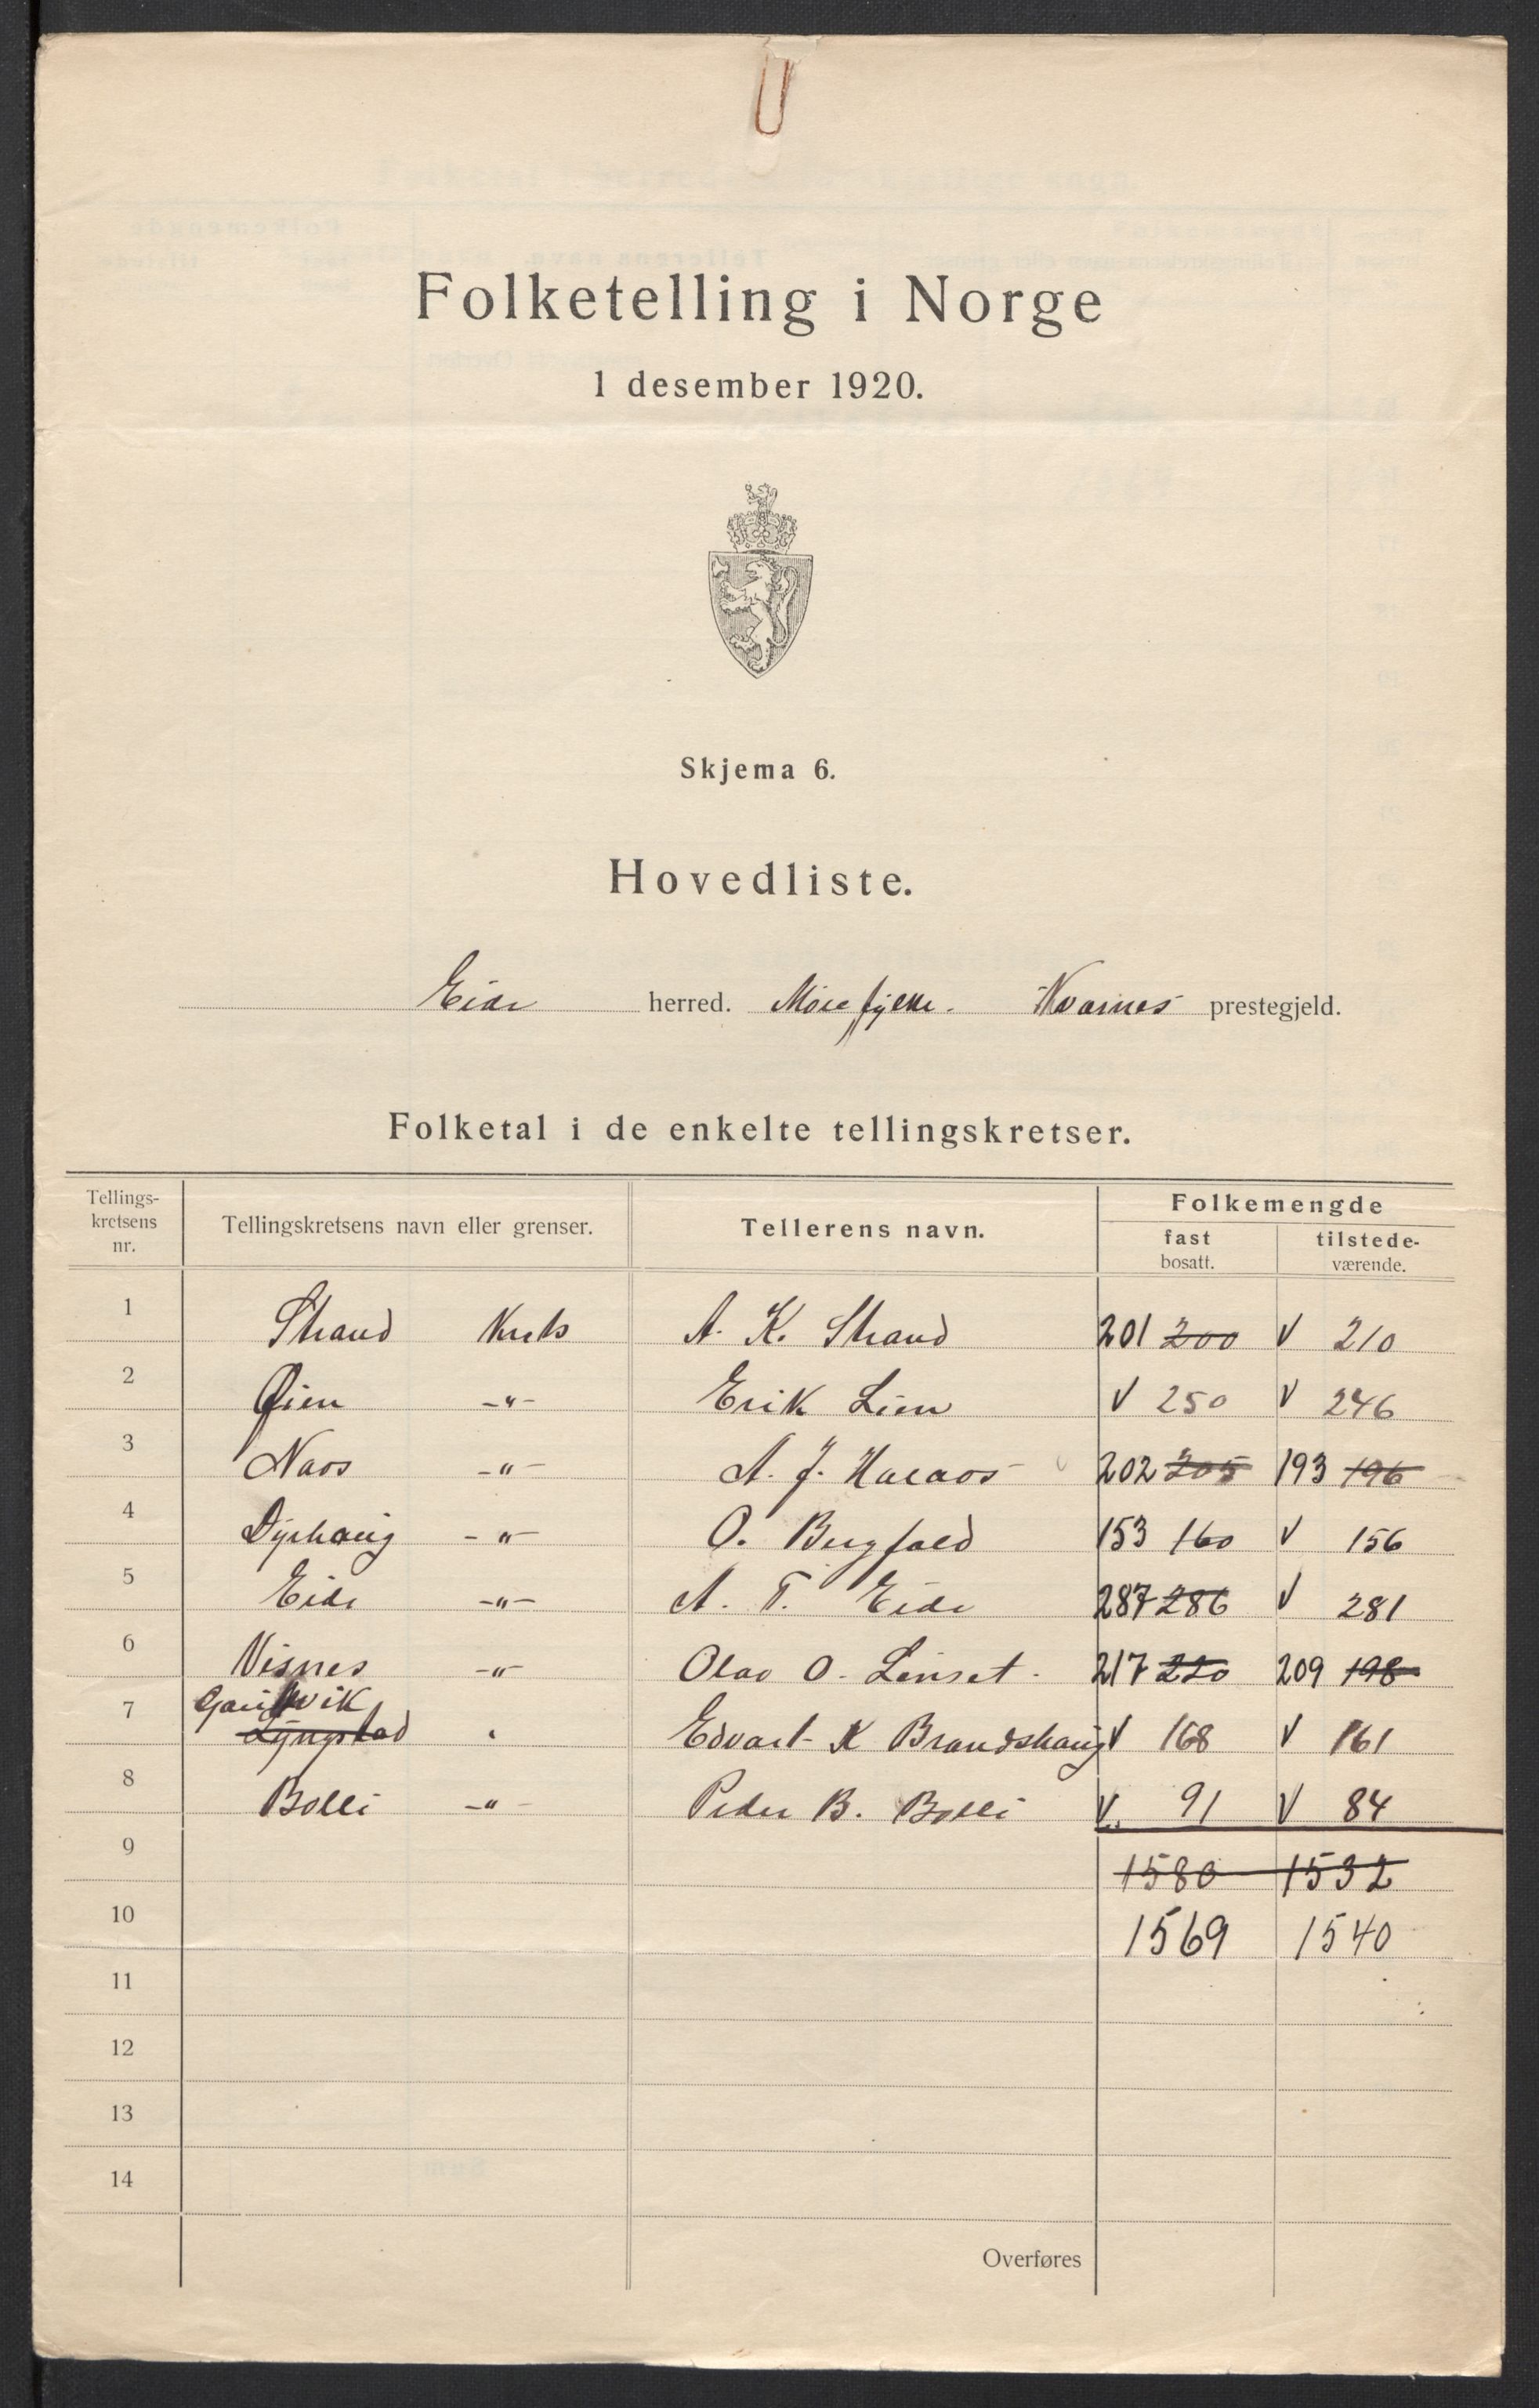 Folketelling i Norge
1 desember 1920.
Skjema 6.
Hovedliste.
Eide herred. Møre fylke. Kvernes prestegjeld.
Folketal i de enkelte tellingskretser.
Tellings-
kretsens
nr.
Tellingskretsens navn eller grenser.
Tellerens navn.
Folkemengde
fast
bosatt.
tilstede-
værende.
1 Strand Kreds A. K. Strand 201 200 V 210
2 Øien -"- Erik Lien V 250 V 246
3 Naas -"- A. J. Haraas 202 205 193 196
4 Dyrhaug -"- O. Bergfald 153 160 V 156
5 Eide -"- A. T. Eide 287 286 V 281
6 Visnes -"- Olav O. Linset. 217 220 209 198
7 Gautvik
Lyngstad " Edvart K Brandshaug V 168 V 161
8 Bolli -"- Peder B. Bolli V. 91 V 84
9 1580 1532
10 1569 1540
11
12
13
14
Overføres